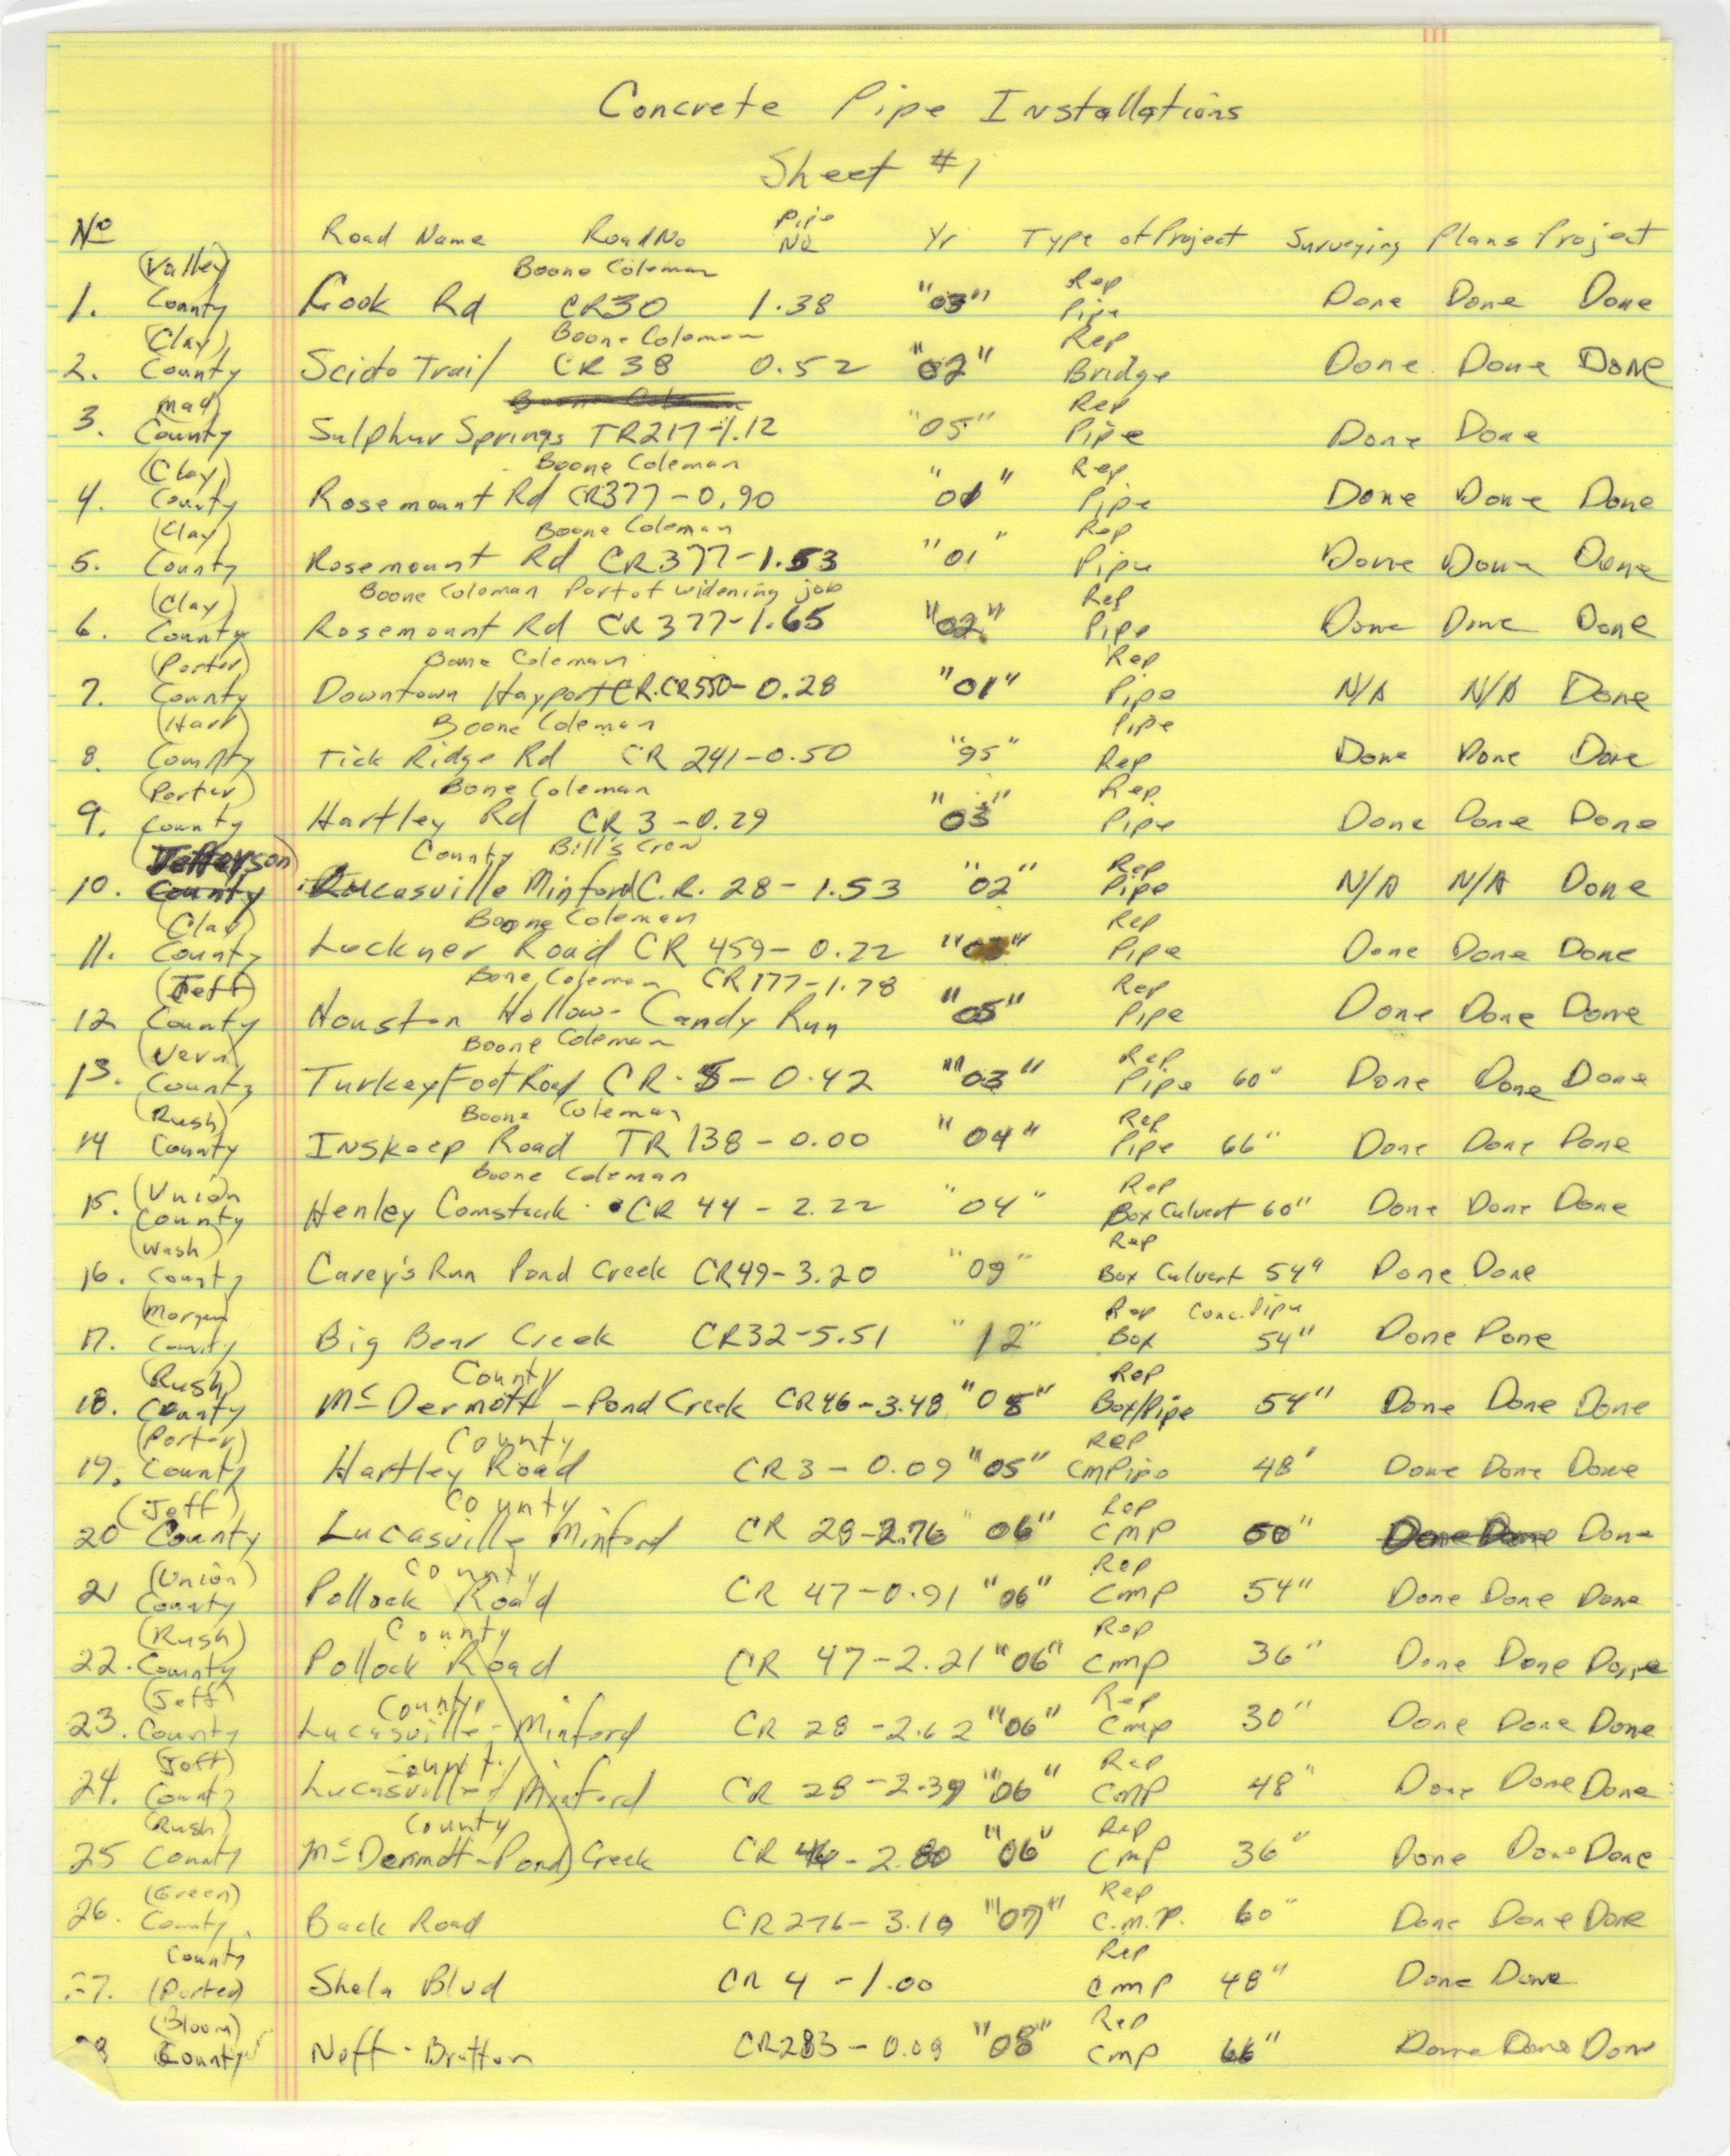 Concrete Pipe Installations
Sheet #1
No Road Name Road No Pipe No Yr Type of Project Surveying Plans Project
(Valley) Boone Coleman Rep
1. County Cook Rd CR30 1.38 "03" Pipe Done Done Done
(Clay) Boone Coleman Rep
2. County Scioto Trail CR 38 0.52 "02" Bridge Done Done Done
(Mad) Rep
3. County Sulphur Springs TR217-1.12 "05" Pipe Done Done
(Clay) Boone Coleman Rep
4. County Rosemount Rd CR377-0.90 "01" Pipe Done Done Done
(Clay) Boone Coleman Rep
5. County Rosemount Rd CR377-1.53 "01" Pipe Done Done Done
(Clay) Boone Coleman Part of widening job Rep
6. County Rosemount Rd CR 377-1.65 "02" Pipe Done Done Done
(Porter) Boone Coleman Rep
7. County Downtown Hayport CR. CR550-0.28 "01" Pipe N/A N/A Done
(Harr) Boone Coleman Pipe
8. County Tick Ridge Rd CR 241-0.50 "95" Rep Done Done Done
(Porter) Boone Coleman Rep
9. County Hartley Rd CR 3-0.29 "03" Pipe Done Done Done
(Jefferson) County Bill's Crew Rep
10. County Lucasville Minford C.R. 28-1.53 "02" Pipe N/A N/A Done
(Clay) Boone Coleman Rep
11. County Lockner Road CR 459-0.22 Pipe Done Done Done
(Jeff) Bone Coleman CR177-1.78 Rep
12 County Houston Hollow-Candy Run "05" Pipe Done Done Done
(Vern) Boone Coleman Rep
13. County Turkey Foot Road CR-5-0.42 "03" Pipe 60" Done Done Done
(Rush) Boone Coleman Rep
14 County Inskeep Road TR 138-0.00 "04" Pipe 66" Done Done Done
(Union Boone Coleman Rep
15. County Henley Comstock CR 44-2.22 "04" Box Culvert 60" Done Done Done
(Wash) Rep
16. County Carey's Run Pond Creek CR49-3.20 "09" Box Culvert 54" Done Done
(Morgan) Rep Conc. Pipe
17. County Big Bear Creek CR32-5.51 "12" Box 54" Done Done
(Rush) County Rep
18. County McDermott-Pond Creek CR46-3.48 "08" Box/Pipe 54" Done Done Done
(Porter) County Rep
19. County Hartley Road CR3-0.09 "05" CMPipe 48" Done Done Done
(Jeff) County Rep
20 County Lucasville Minford CR 28-2.76 "06" CMP 60" Done Done Done
(Union) County Rep
21 County Pollock Road CR 47-0.91 "06" CMP 54" Done Done Done
(Rush) County Rep
22. County Pollock Road CR 47-2.21 "06" CMP 36" Done Done Done
(Jeff) County Rep
23. County Lucasville-Minford CR 28-2.62 "06" CMP 30" Done Done Done
(Jeff) County Rep
24. County Lucasville Minford CR 28-2.39 "06" CMP 48" Done Done Done
(Rush) County Rep
25 County McDermott-Pond Creek CR 46-2.80 "06" CMP 36" Done Done Done
(Green) Rep
26. County Back Road CR276-3.10 "07" C.M.P. 60" Done Done Done
County Rep
27. (Porter) Shela Blvd CR 4-1.00 CMP 48" Done Done
(Bloom) Rep
County Neff-Bratton CR283-0.09 "08" CMP 66" Done Done Done